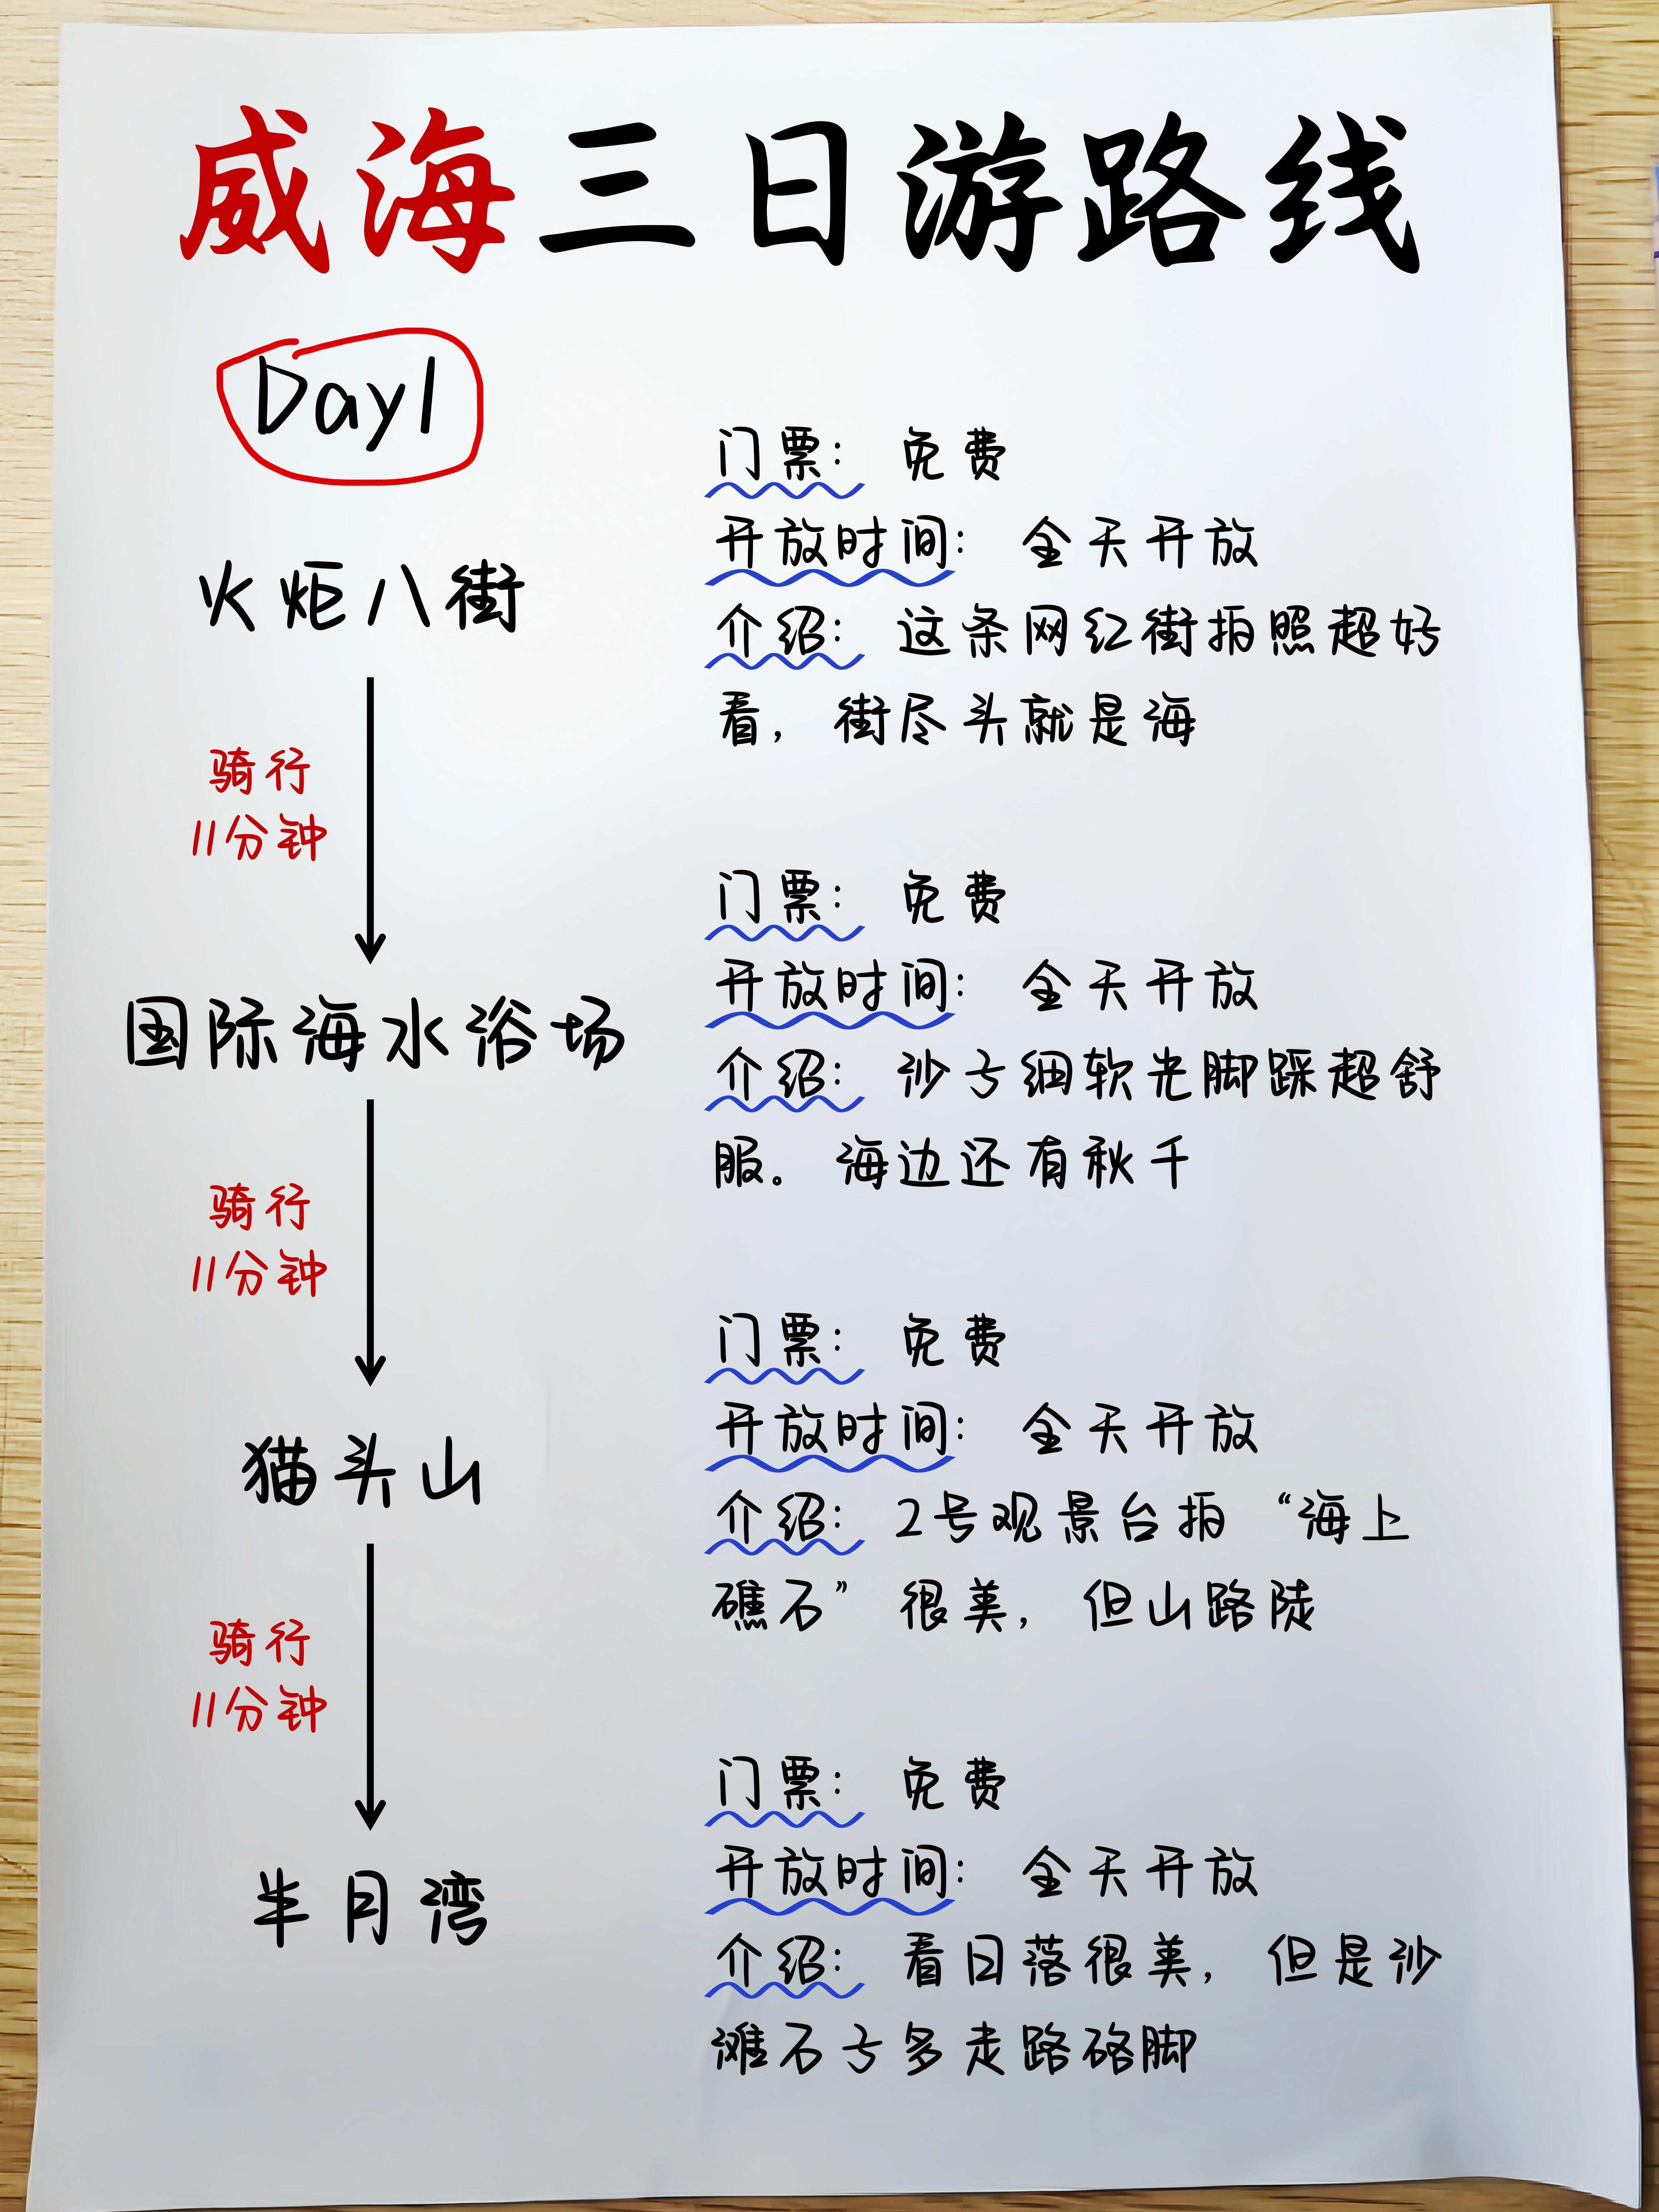 威海三日游路线
Day1
门票： 免费
开放时间： 全天开放
火炬八街
介绍： 这条网红街拍照超好
看，街尽头就是海
骑行
11分钟
门票： 免费
开放时间： 全天开放
国际海水浴场
介绍： 沙子细软光脚踩超舒
服。海边还有秋千
骑行
11分钟
门票： 免费
开放时间： 全天开放
猫头山
介绍： 2号观景台拍“海上
礁石”很美，但山路陡
骑行
11分钟
门票： 免费
开放时间： 全天开放
半月湾
介绍： 看日落很美，但是沙
滩石子多走路硌脚